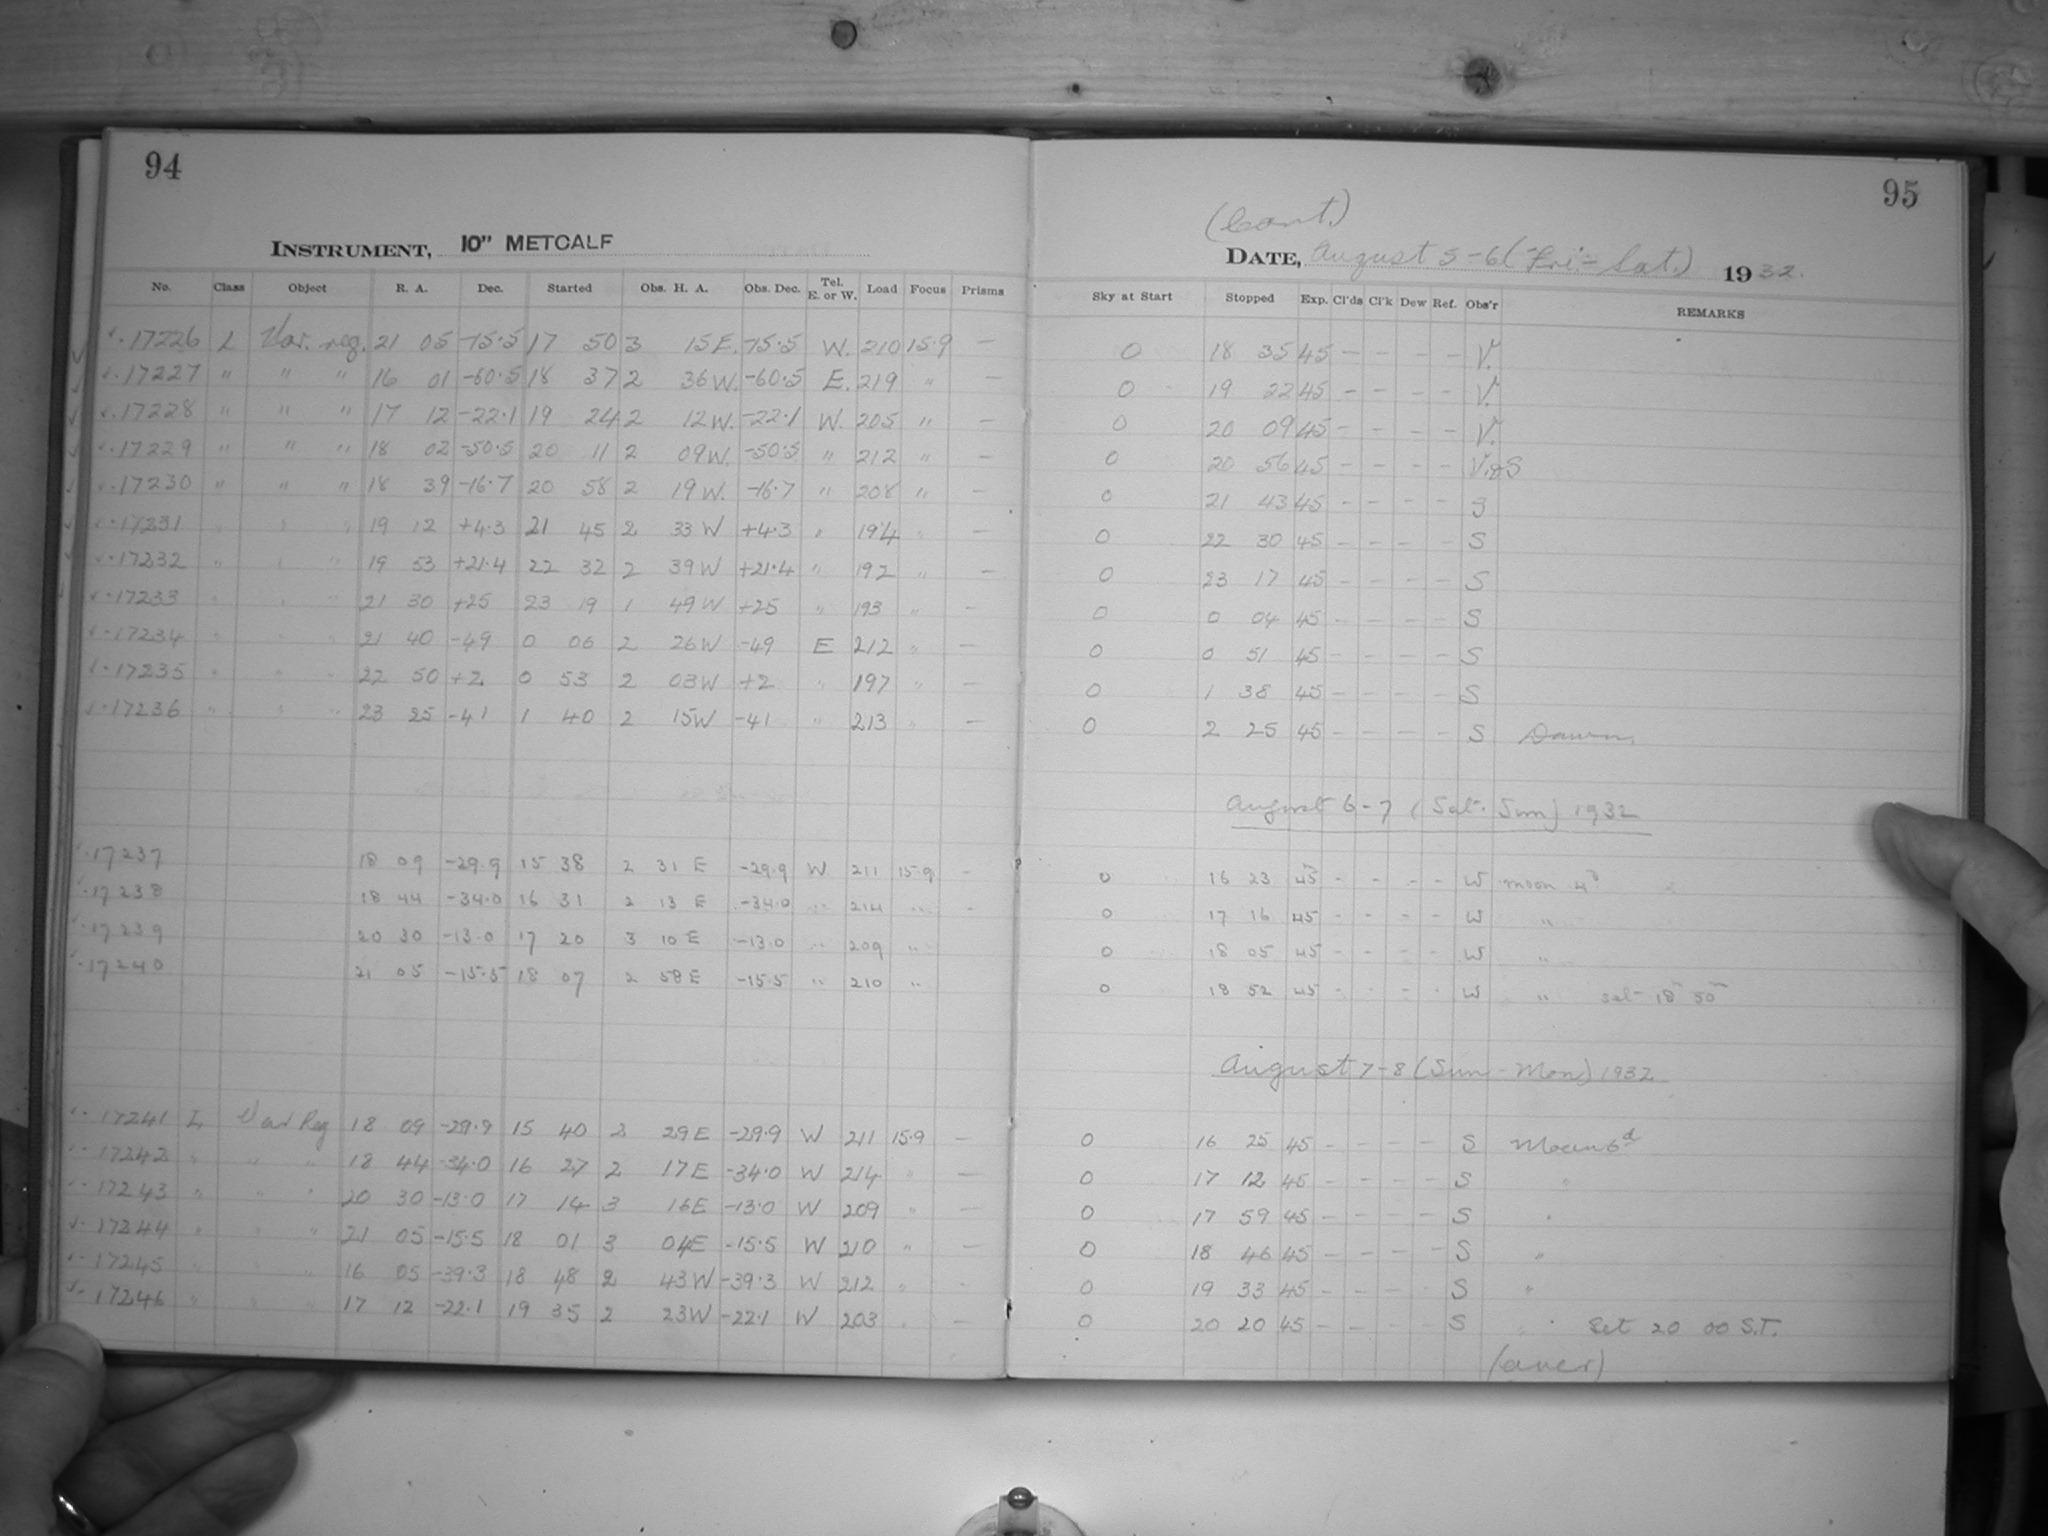 94
INSTRUMENT, 10" METCALF
No. Class Object R. A. Dec. Started Obs. H. A. Obs. Dec. Tel. E. or W. Load Focus Prisms
17226 L Var. reg. 21 05 -15.5 17 50 3 15 E. -15.5 W. 210 15.9 —
17227 " " " 16 01 -60.5 18 37 2 36 W. -60.5 E. 219 " —
17228 " " " 17 12 -22.1 19 24 2 12 W. -22.1 W. 205 " —
17229 " " " 18 02 -50.5 20 11 2 09 W. -50.5 " 212 " —
17230 " " " 18 39 -16.7 20 58 2 19 W. -16.7 " 208 " —
17231 " " " 19 12 +4.3 21 45 2 33 W +4.3 " 194 " —
17232 " " " 19 53 +21.4 22 32 2 39 W +21.4 " 192 " —
17233 " " " 21 30 +25 23 19 1 49 W +25 " 193 " —
17234 " " " 21 40 -49 0 06 2 26 W -49 E 212 " —
17235 " " " 22 50 +2 0 53 2 03 W +2 " 197 " —
17236 " " " 23 25 -41 1 40 2 15 W -41 " 213 " —
17237 18 09 -29.9 15 38 2 31 E -29.9 W 211 15.9 -
17238 18 44 -34.0 16 31 2 13 E -34.0 " 214 " -
17239 20 30 -13.0 17 20 3 10 E -13.0 " 209 "
17240 21 05 -15.5 18 07 2 58 E -15.5 " 210 "
17241 L Var Reg 18 09 -29.9 15 40 2 29 E -29.9 W 211 15.9 —
17242 " " " 18 44 -34.0 16 27 2 17 E -34.0 W 214 " —
17243 " " " 20 30 -13.0 17 14 3 16 E -13.0 W 209 " —
17244 " " " 21 05 -15.5 18 01 3 04 E -15.5 W 210 " —
17245 " " " 16 05 -39.3 18 48 2 43 W -39.3 W 212 " -
17246 " " " 17 12 -22.1 19 35 2 23 W -22.1 W 203 " —
95
(Cont.)
DATE, August 5-6 (Fri.- Sat.) 1932.
Sky at Start Stopped Exp. Cl'ds Cl'k Dew Ref. Obs'r REMARKS
0 18 35 45 - - - - V.
0 19 22 45 - - - - V.
0 20 09 45 - - - - V.
0 20 56 45 - - - - V.&S
0 21 43 45 - - - - S
0 22 30 45 - - - - S
0 23 17 45 - - - - S
0 0 04 45 - - - - S
0 0 51 45 - - - - S
0 1 38 45 - - - - S
0 2 25 45 - - - - S Dawn.
August 6-7 (Sat- Sun) 1932
0 16 23 45 - - - - W moon 4d
0 17 16 45 - - - - W "
0 18 05 45 - - - - W "
0 18 52 45 - - - - W " set 18 50
August 7-8 (Sun-Mon) 1932
0 16 25 45 - - - - S Moon 6d
0 17 12 45 - - - - S "
0 17 59 45 - - - - S "
0 18 46 45 - - - - S "
0 19 33 45 - - - - S "
0 20 20 45 - - - - S " Set 20 00 S.T.
(over)